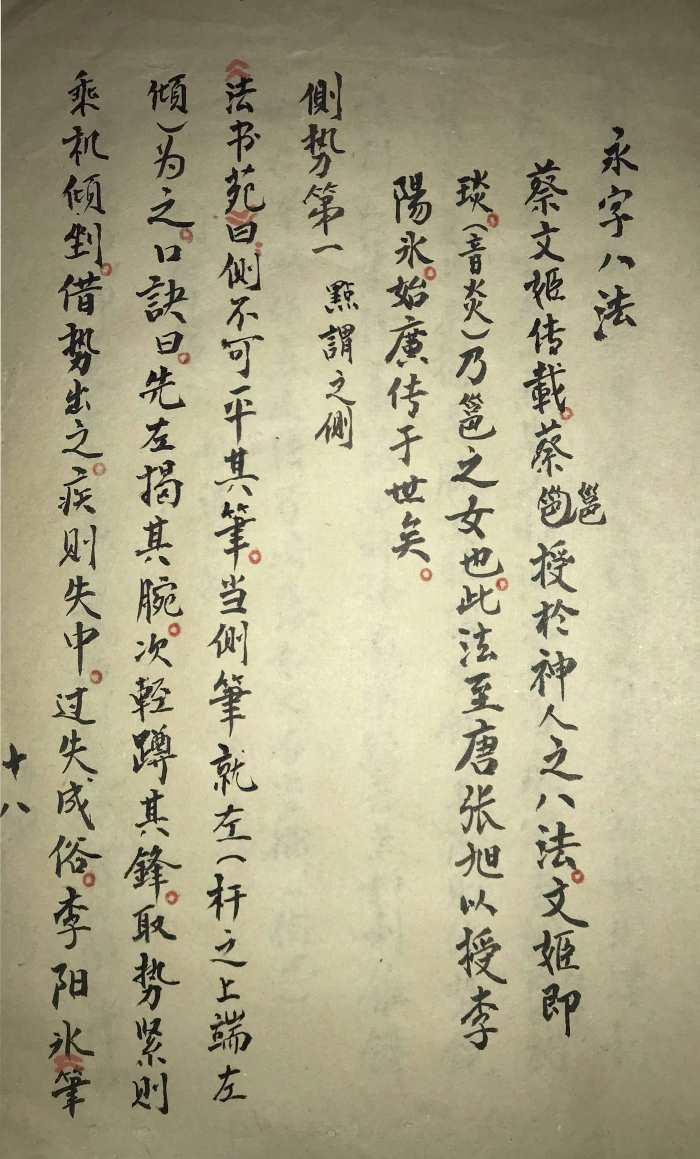 永字八法
蔡文姬传載。蔡邕授於神人之八法。文姬即
琰。(音炎)乃邕之女也。此法至唐張旭以授李
陽氷。始廣传于世矣。
側勢第一 點謂之側
《法书苑》曰:側不可平其筆。当側筆就左(杆之上端左
傾)为之。口訣曰。先左揭其腕。次輕蹲其鋒。取势紧則
乘机傾剉。借勢出之。疾則失中。过失、成俗。李阳氷《筆
十八